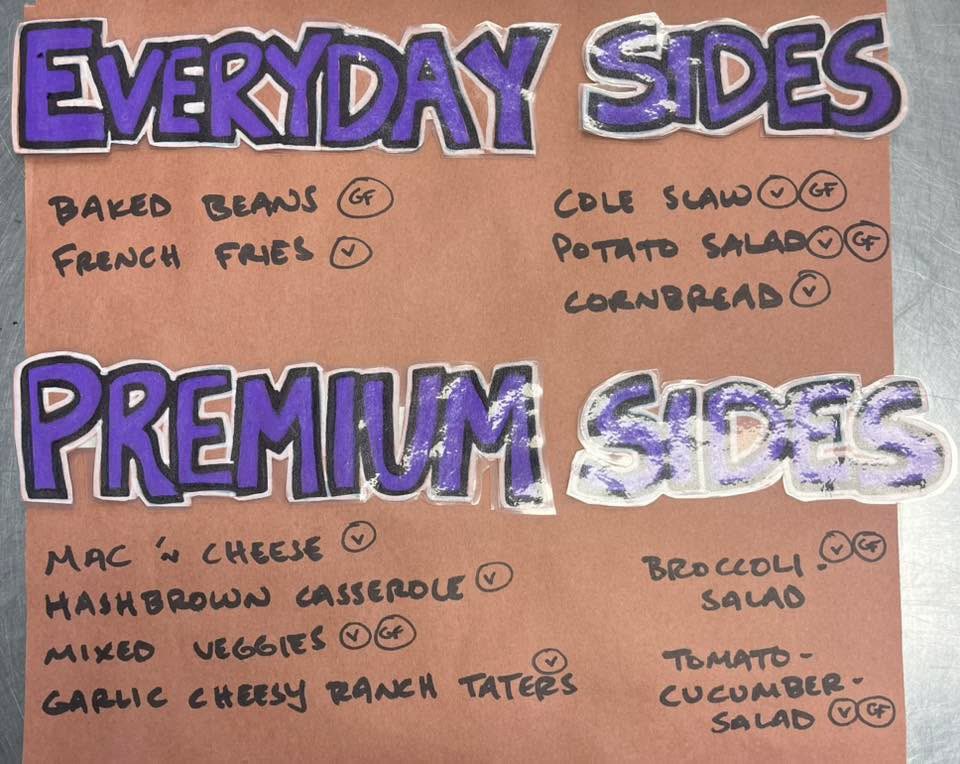 EVERYDAY SIDES
BAKED BEANS GF
FRENCH FRIES V
COLE SLAW V GF
POTATO SALAD V GF
CORNBREAD V
PREMIUM SIDES
MAC 'N CHEESE V
HASHBROWN CASSEROLE V
MIXED VEGGIES V GF
GARLIC CHEESY RANCH TATERS V
BROCCOLI- V GF
SALAD
TOMATO-
CUCUMBER-
SALAD V GF